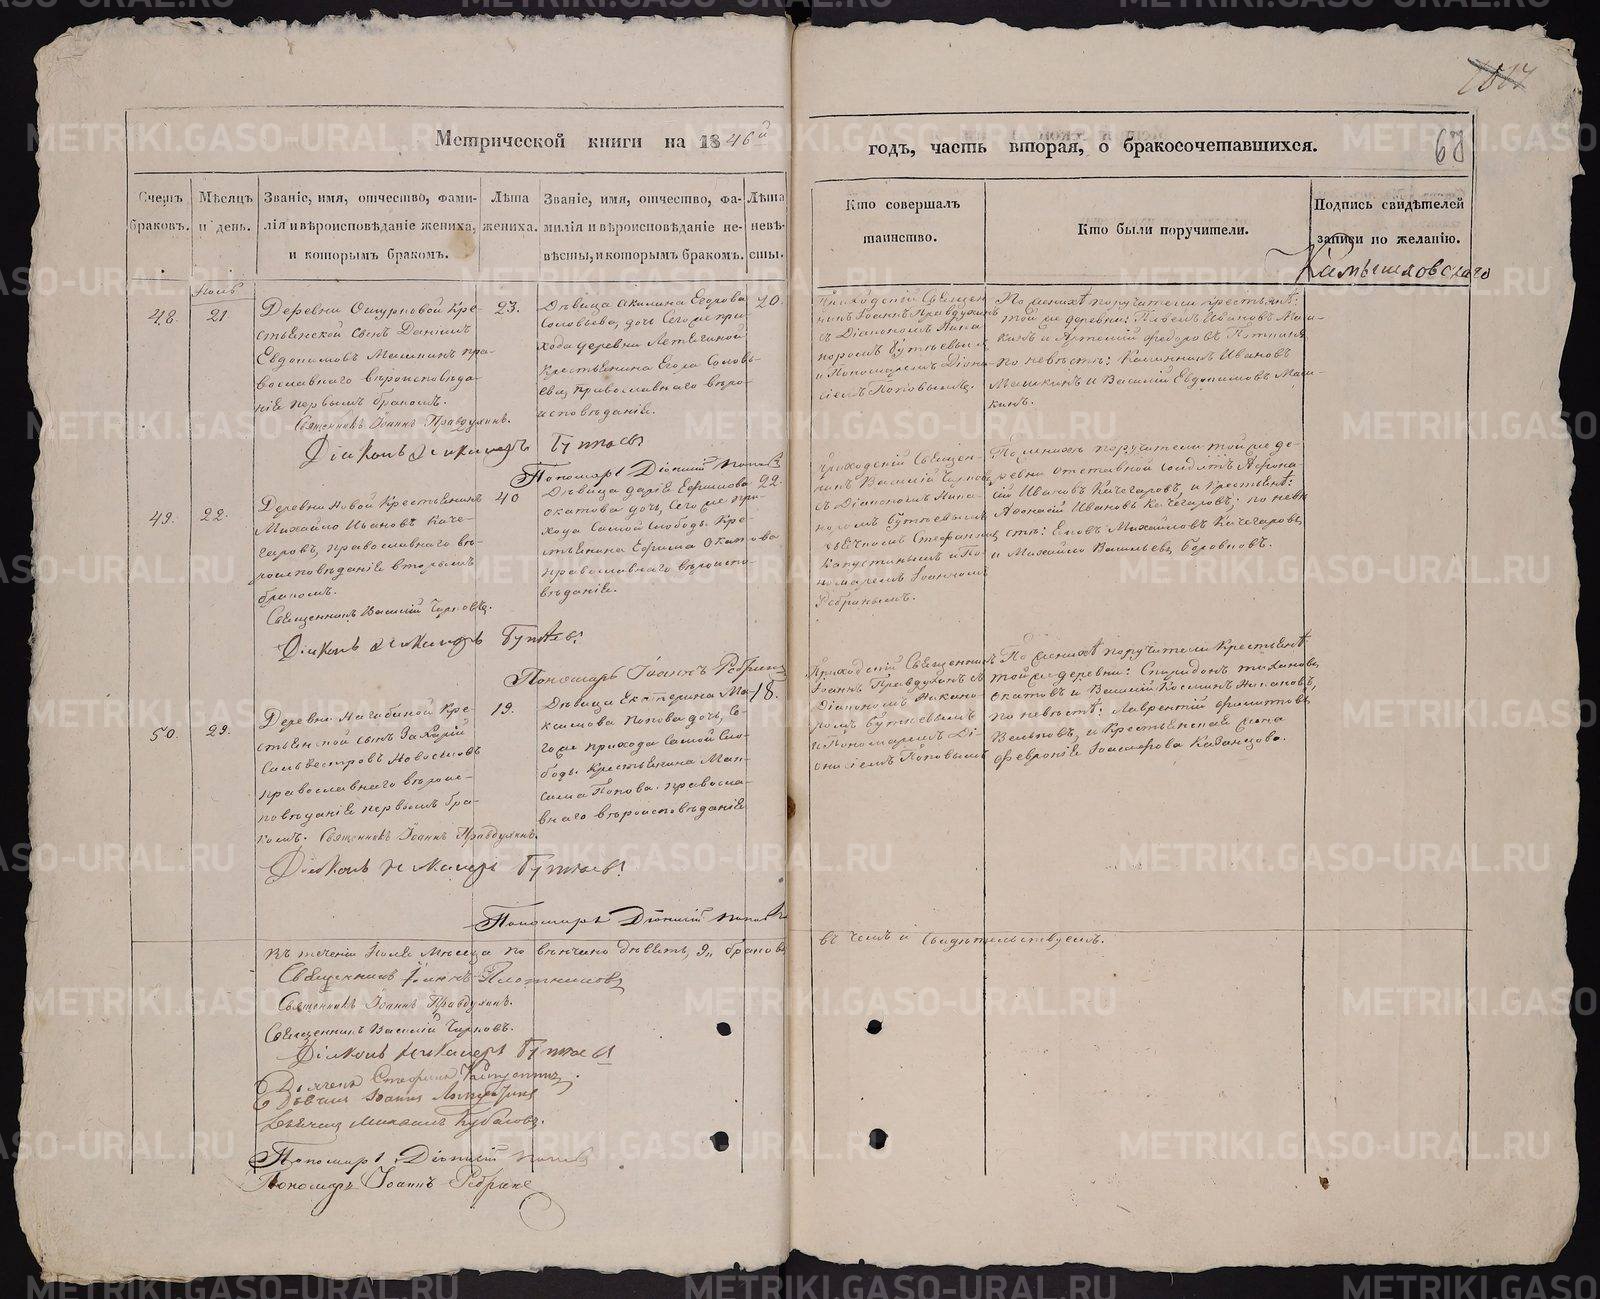 Метрической книги на 1846й
годъ, часть вторая, о бракосочетавшихся.
68
Счетъ браковъ.
Мѣсяцъ и день.
Званіе, имя, отчество, фами-
лія и вѣроисповѣданіе жениха,
и которымъ бракомъ.
Лѣта жениха.
Званіе, имя, отчество, фа-
милія и вѣроисповѣданіе не-
вѣсты, и которымъ бракомъ.
Лѣта невѣ-
сты.
Кто совершалъ
таинство.
Кто были поручители.
Подпись свидѣтелей
записи по желанію.
Камышловскаго
48.
21
Деревни Ошурковой Кре-
стьянской сынъ Даніилъ
Евдокимовъ Машкинъ пра-
вославнаго вѣроисповѣда-
нія первымъ бракомъ.
Священникъ Іоаннъ Правдухинъ.
23.
Дѣвица Акилина Егорова
Соловьева, дочь сего же при-
хода деревни
крестьянина Егора Соловь-
ева, православнаго вѣро-
исповѣданія.
20.
Діаконъ Никаноръ Бутаевъ
Пономарь Діонисій Поповъ
Приходскій Священ-
никъ Іоаннъ Правдухинъ
съ Діакономъ Ника-
норомъ Бутаевымъ
и Пономаремъ Діони-
сіемъ Поповымъ.
По женихѣ поручители крестьяне:
той же деревни: Иванов Маш-
кинъ и Артемій Федоровъ
по невѣстѣ: Иванов
Машкинъ и Василій Евдокимовъ Маш-
кинъ.
49.
22.
Деревни Новой Крестьянинъ
Михайло Ивановъ Каче-
гаровъ, православнаго вѣ-
роисповѣданія вторымъ
бракомъ.
Священникъ Василій Чирковъ.
40
Дѣвица Дарія Ефимова
Окатова дочь, сего же при-
хода самой слободы Кре-
стьянина Ефима Окатова
православнаго вѣроиспо-
вѣданія.
22.
Діаконъ Никаноръ Бутаевъ
Пономарь Іоаннъ Ребринъ
Приходскій Священ-
никъ Василій Чирковъ
съ Діакономъ Ника-
норомъ Бутаевымъ
Стефаномъ
Капустинымъ и По-
номаремъ Іоанномъ
Ребринымъ.
По женихѣ поручители той же де-
ревни отставной солдатъ Афона-
сій Ивановъ Качегаровъ, и крестьяне:
Афонасій Ивановъ Качегаровъ; по невѣ-
стѣ: Михайловъ Качегаровъ,
и Михайло Васильевъ Боровковъ.
50.
29.
Деревни Нагибиной Кре-
стьянской сынъ Захарій
Сильвестровъ Новоселовъ
православнаго вѣроис-
повѣданія первымъ бра-
комъ. Священникъ Іоаннъ Правдухинъ.
19.
Дѣвица Екатерина Ма-
ксимова Попова дочь, се-
го же прихода самой сло-
боды Крестьянина Мак-
сима Попова. православ-
наго вѣроисповѣданія
18.
Діаконъ Никаноръ Бутаевъ
Пономарь Діонисій Поповъ
Приходскій Священникъ
Іоаннъ Правдухинъ съ
Діакономъ Никано-
ромъ Бутаевымъ
и Пономаремъ Ді-
онисіемъ Поповымъ
По женихѣ поручители Крестьяне
той же деревни: Спиридонъ Тихановъ
Окатовъ и Василій Козминъ
по невѣстѣ: Лаврентій
и Крестьянская жена
Февронія Казанцова.
Въ теченіи Іюля Мѣсяца повѣнчано девять, 9ть браковъ
въ чемъ и свидѣтельствуемъ.
Священникъ Іоаннъ Плотниковъ
Священникъ Іоаннъ Правдухинъ.
Священникъ Василій Чирковъ.
Діаконъ Никаноръ Бутаевъ
Стефанъ Капустинъ.
Іоаннъ
Михаилъ
Пономарь Діонисій Поповъ
Пономарь Іоаннъ Ребринъ
METRIKI.GASO-URAL.RU